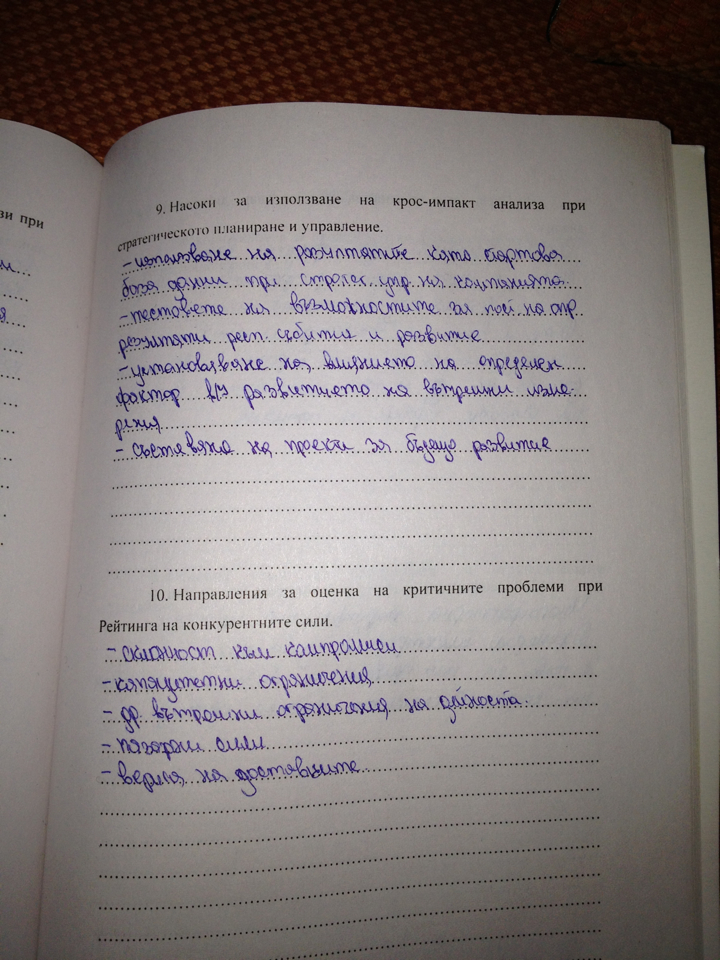 ви при
9. Насоки за използване на крос-импакт анализа при
стратегическото планиране и управление.
- използване на резултатите като стартова
база данни при стратег. упр. на компанията
- тестовете на възможностите за на опр.
резултати респ. събития и развитие
- установяване на влиянието на определен
фактор в/у развитието на вътрешни изме-
рения
- съставяне на проекти за бъдещо развитие
10. Направления за оценка на критичните проблеми при
Рейтинга на конкурентните сили.
- склонност към компромиси
- капацитетни ограничения
- др. вътрешни ограничения на дейността
- пазарни сили
- верига на доставките